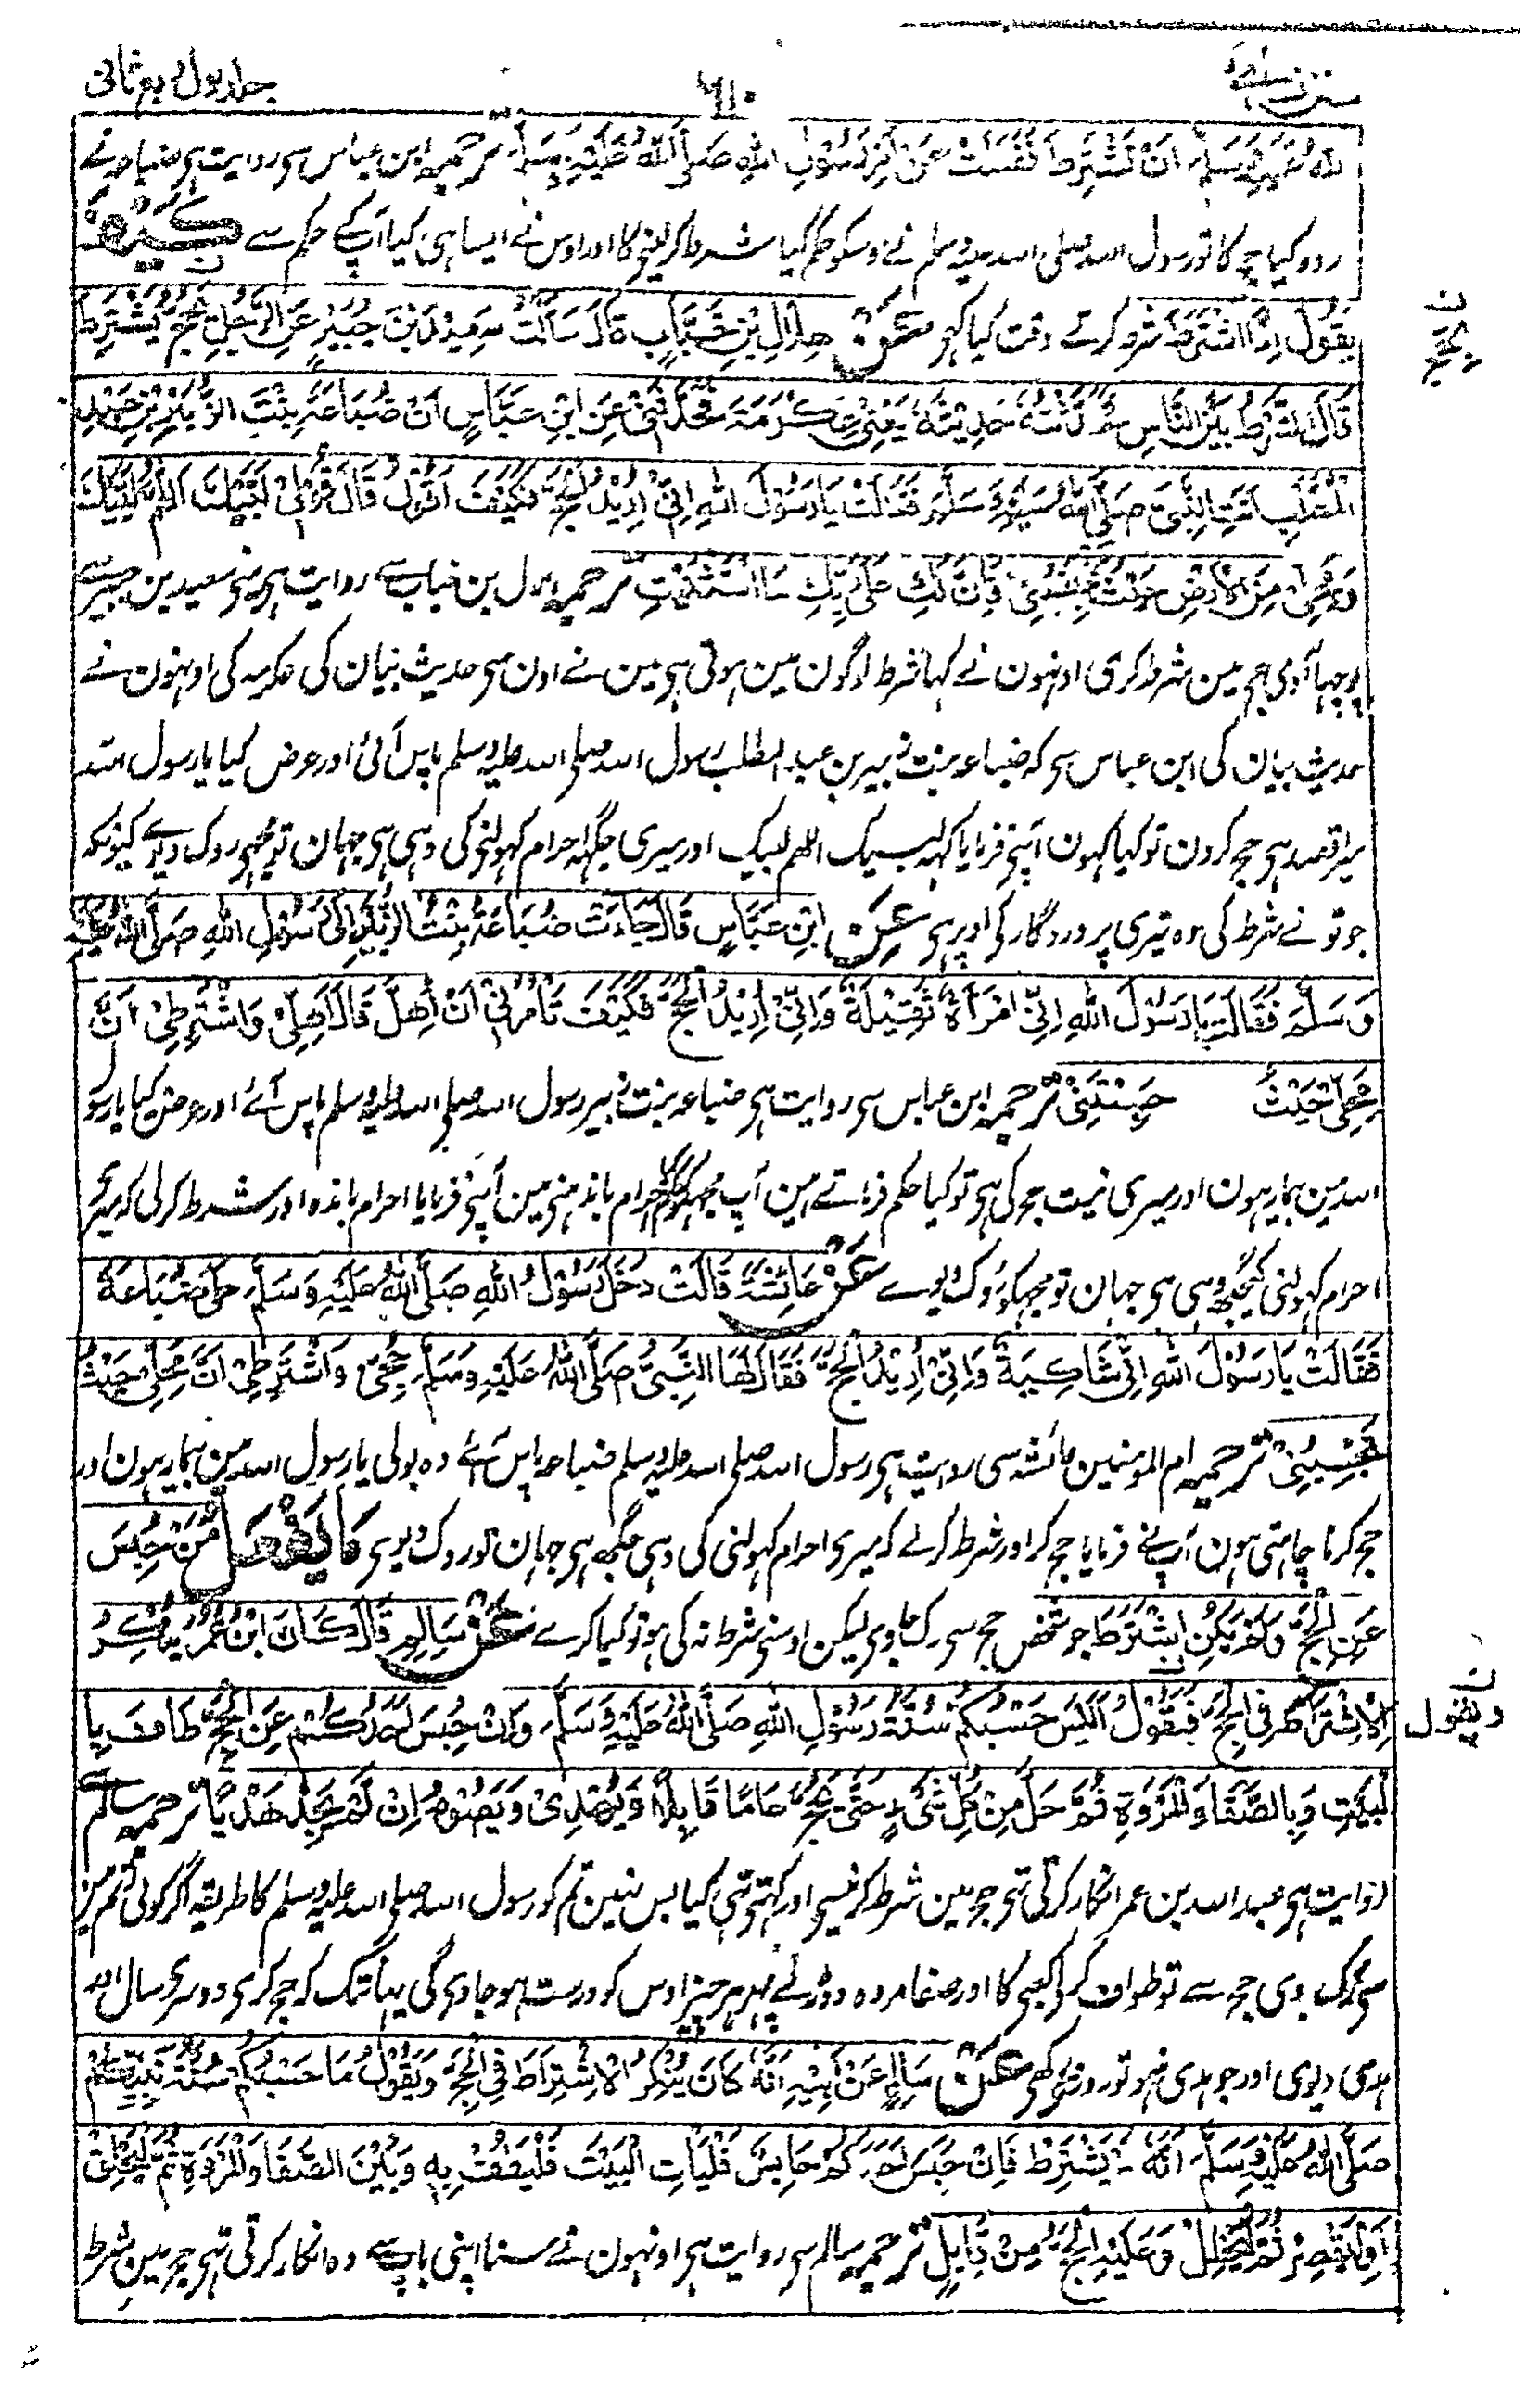 سنن نسائی
۶۱۰
جلد اول ربع ثانی
اللهُ عَلَيْهِ وَسَلَّمَ اَنْ تَشْتَرِطَ فَفَعَلَتْ عَنْ اَمْرِ رَسُوْلِ اللهِ صَلَّى اللهُ عَلَيْهِ وَسَلَّمَ ترجمہ ابن عباس سے روایت ہی ضباعہ نے
ارادہ کیا حج کا تو رسول اللہ صلی اللہ علیہ وسلم نے اوسکو حکم کیا شرط کر لینی کا اور اوس نے ایسا ہی کیا آپ کے حکم سے كَيْفَ
يَقُوْلُ اِذَا اشْتَرَطَ شرط کرتے وقت کیا کہو عَنْ هِلَالِ بْنِ خَبَّابٍ قَالَ سَاَلْتُ سَعِيْدَ بْنَ جُبَيْرٍ عَنِ الرَّجُلِ يَحُجُّ يَشْتَرِطُ
ن يَحُجُّ
قَالَ الشَّرْطُ بَيْنَ النَّاسِ فَحَدَّثْتُهٗ حَدِيْثَهٗ يَعْنِيْ عِكْرِمَةَ فَحَدَّثَنِيْ عَنِ ابْنِ عَبَّاسٍ اَنَّ ضُبَاعَةَ بِنْتَ الزُّبَيْرِ بْنِ عَبْدِ
الْمُطَّلِبِ اَتَتِ النَّبِيَّ صَلَّى اللهُ عَلَيْهِ وَسَلَّمَ فَقَالَتْ يَا رَسُوْلَ اللهِ اِنِّيْ اُرِيْدُ الْحَجَّ فَكَيْفَ اَقُوْلُ قَالَ قُوْلِيْ لَبَّيْكَ اللّٰهُمَّ لَبَّيْكَ
وَمَحِلِّيْ مِنَ الْاَرْضِ حَيْثُ تَحْبِسُنِيْ فَاِنَّ لَكِ عَلٰى رَبِّكِ مَا اسْتَثْنَيْتِ ترجمہ ہلال بن خباب سے روایت ہی مینے سعید بن جبیر سے
پوچہا آدمی حج مین شرط کری اونہون نے کہا شرط لوگون مین ہوتی ہی مین نے اون سی حدیث بیان کی عکرمہ کی اونہون نے
حدیث بیان کی ابن عباس سے کہ ضباعہ بنت زبیر بن عبد المطلب رسول اللہ صلی اللہ علیہ وسلم پاس آئی اور عرض کیا یا رسول اللہ
میرا قصد ہی حج کرون تو کیا کہون آپنے فرمایا کہہ لبیک اللہم لبیک اور میری جگہہ احرام کہولنی کی وہی ہی جہان تو مجہی روک دیوے کیونکہ
جو تو نے شرط کی وہ تیری پروردگار کی اوپر ہی عَنِ ابْنِ عَبَّاسٍ قَالَ جَاءَتْ ضُبَاعَةُ بِنْتُ الزُّبَيْرِ اِلٰى رَسُوْلِ اللهِ صَلَّى اللهُ عَلَيْهِ
وَسَلَّمَ فَقَالَتْ يَا رَسُوْلَ اللهِ اِنِّي امْرَاَةٌ ثَقِيْلَةٌ وَاِنِّيْ اُرِيْدُ الْحَجَّ فَكَيْفَ تَاْمُرُنِيْ اَنْ اُهِلَّ قَالَ اَهِلِّيْ وَاشْتَرِطِيْ اَنَّ
مَحِلِّيْ حَيْثُ حَبَسْتَنِيْ ترجمہ ابن عباس سے روایت ہی ضباعہ بنت زبیر رسول اللہ صلی اللہ علیہ وسلم پاس آئے اور عرض کیا یا رسول
اللہ مین بیمار ہون اور میری نیت حج کی ہی تو کیا حکم فرماتے ہین آپ مجہکو احرام باندہنی مین آپنے فرمایا احرام باندہ اور شرط کر لی کہ میری
احرام کہولنی کی جگہ وہی ہی جہان تو مجہکو روک دیوے عَنْ عَائِشَةَ قَالَتْ دَخَلَ رَسُوْلُ اللهِ صَلَّى اللهُ عَلَيْهِ وَسَلَّمَ عَلٰى ضُبَاعَةَ
فَقَالَتْ يَا رَسُوْلَ اللهِ اِنِّيْ شَاكِيَةٌ وَاِنِّيْ اُرِيْدُ الْحَجَّ فَقَالَ لَهَا النَّبِيُّ صَلَّى اللهُ عَلَيْهِ وَسَلَّمَ حُجِّيْ وَاشْتَرِطِيْ اَنَّ مَحِلِّيْ حَيْثُ
تَحْبِسُنِيْ ترجمہ ام المومنین عائشہ سی روایت ہی رسول اللہ صلی اللہ علیہ وسلم ضباعہ پاس آئے وہ بولی یا رسول اللہ مین بیمار ہون اور
حج کرنا چاہتی ہون آپنے فرمایا حج کر اور شرط کر لے کہ میری احرام کہولنی کی وہی جگہہ ہی جہان تو روک دیوی مَا يَفْعَلُ مَنْ حُبِسَ
عَنِ الْحَجِّ وَلَمْ يَكُنِ اشْتَرَطَ جو شخص حج سی رک جاوی لیکن اوسنی شرط نہ کی ہو تو کیا کرے عَنْ سَالِمٍ قَالَ كَانَ ابْنُ عُمَرَ يُنْكِرُ
الْاِشْتِرَاطَ فِي الْحَجِّ فَيَقُوْلُ اَلَيْسَ حَسْبُكُمْ سُنَّةُ رَسُوْلِ اللهِ صَلَّى اللهُ عَلَيْهِ وَسَلَّمَ وَاِنْ حُبِسَ اَحَدُكُمْ عَنِ الْحَجِّ طَافَ بِا
ن ويقول
لْبَيْتِ وَبِالصَّفَا وَالْمَرْوَةِ ثُمَّ حَلَّ مِنْ كُلِّ شَيْءٍ حَتّٰى يَحُجَّ عَامًا قَابِلًا وَيُهْدِيْ وَيَصُوْمُ اِنْ لَمْ يَجِدْ هَدْيًا ترجمہ سالم سے
روایت ہی عبد اللہ بن عمر انکار کرتی تہی حج مین شرط کرنیسی اور کہتی تہی کیا بس نہین تم کو رسول اللہ صلی اللہ علیہ وسلم کا طریقہ اگر کوئی تم مین
سی رک جاوی حج سے تو طواف کری کعبی کا اور صفا مروہ دوڑ لے پہر ہر چیز اوس کو درست ہو جاوی گی یہانتک کہ حج کری دوسری سال اور
ہدی دیوی اور جو ہدی نہو تو روزی رکہی عَنْ سَالِمٍ عَنْ اَبِيْهِ اَنَّهٗ كَانَ يُنْكِرُ الْاِشْتِرَاطَ فِي الْحَجِّ وَيَقُوْلُ مَا حَسْبُكُمْ سُنَّةُ نَبِيِّكُمْ
صَلَّى اللهُ عَلَيْهِ وَسَلَّمَ اَنَّهٗ لَمْ يَشْتَرِطْ فَاِنْ حَبَسَ اَحَدَكُمْ حَابِسٌ فَلْيَاْتِ الْبَيْتَ فَلْيَطُفْ بِهٖ وَبَيْنَ الصَّفَا وَالْمَرْوَةِ ثُمَّ لْيَحْلِقْ
اَوْ لِيُقَصِّرْ ثُمَّ لْيَحْلِلْ وَعَلَيْهِ الْحَجُّ مِنْ قَابِلٍ ترجمہ سالم سے روایت ہی اونہون نے سنا اپنی باپ سے وہ انکار کرتی تہی حج مین شرط